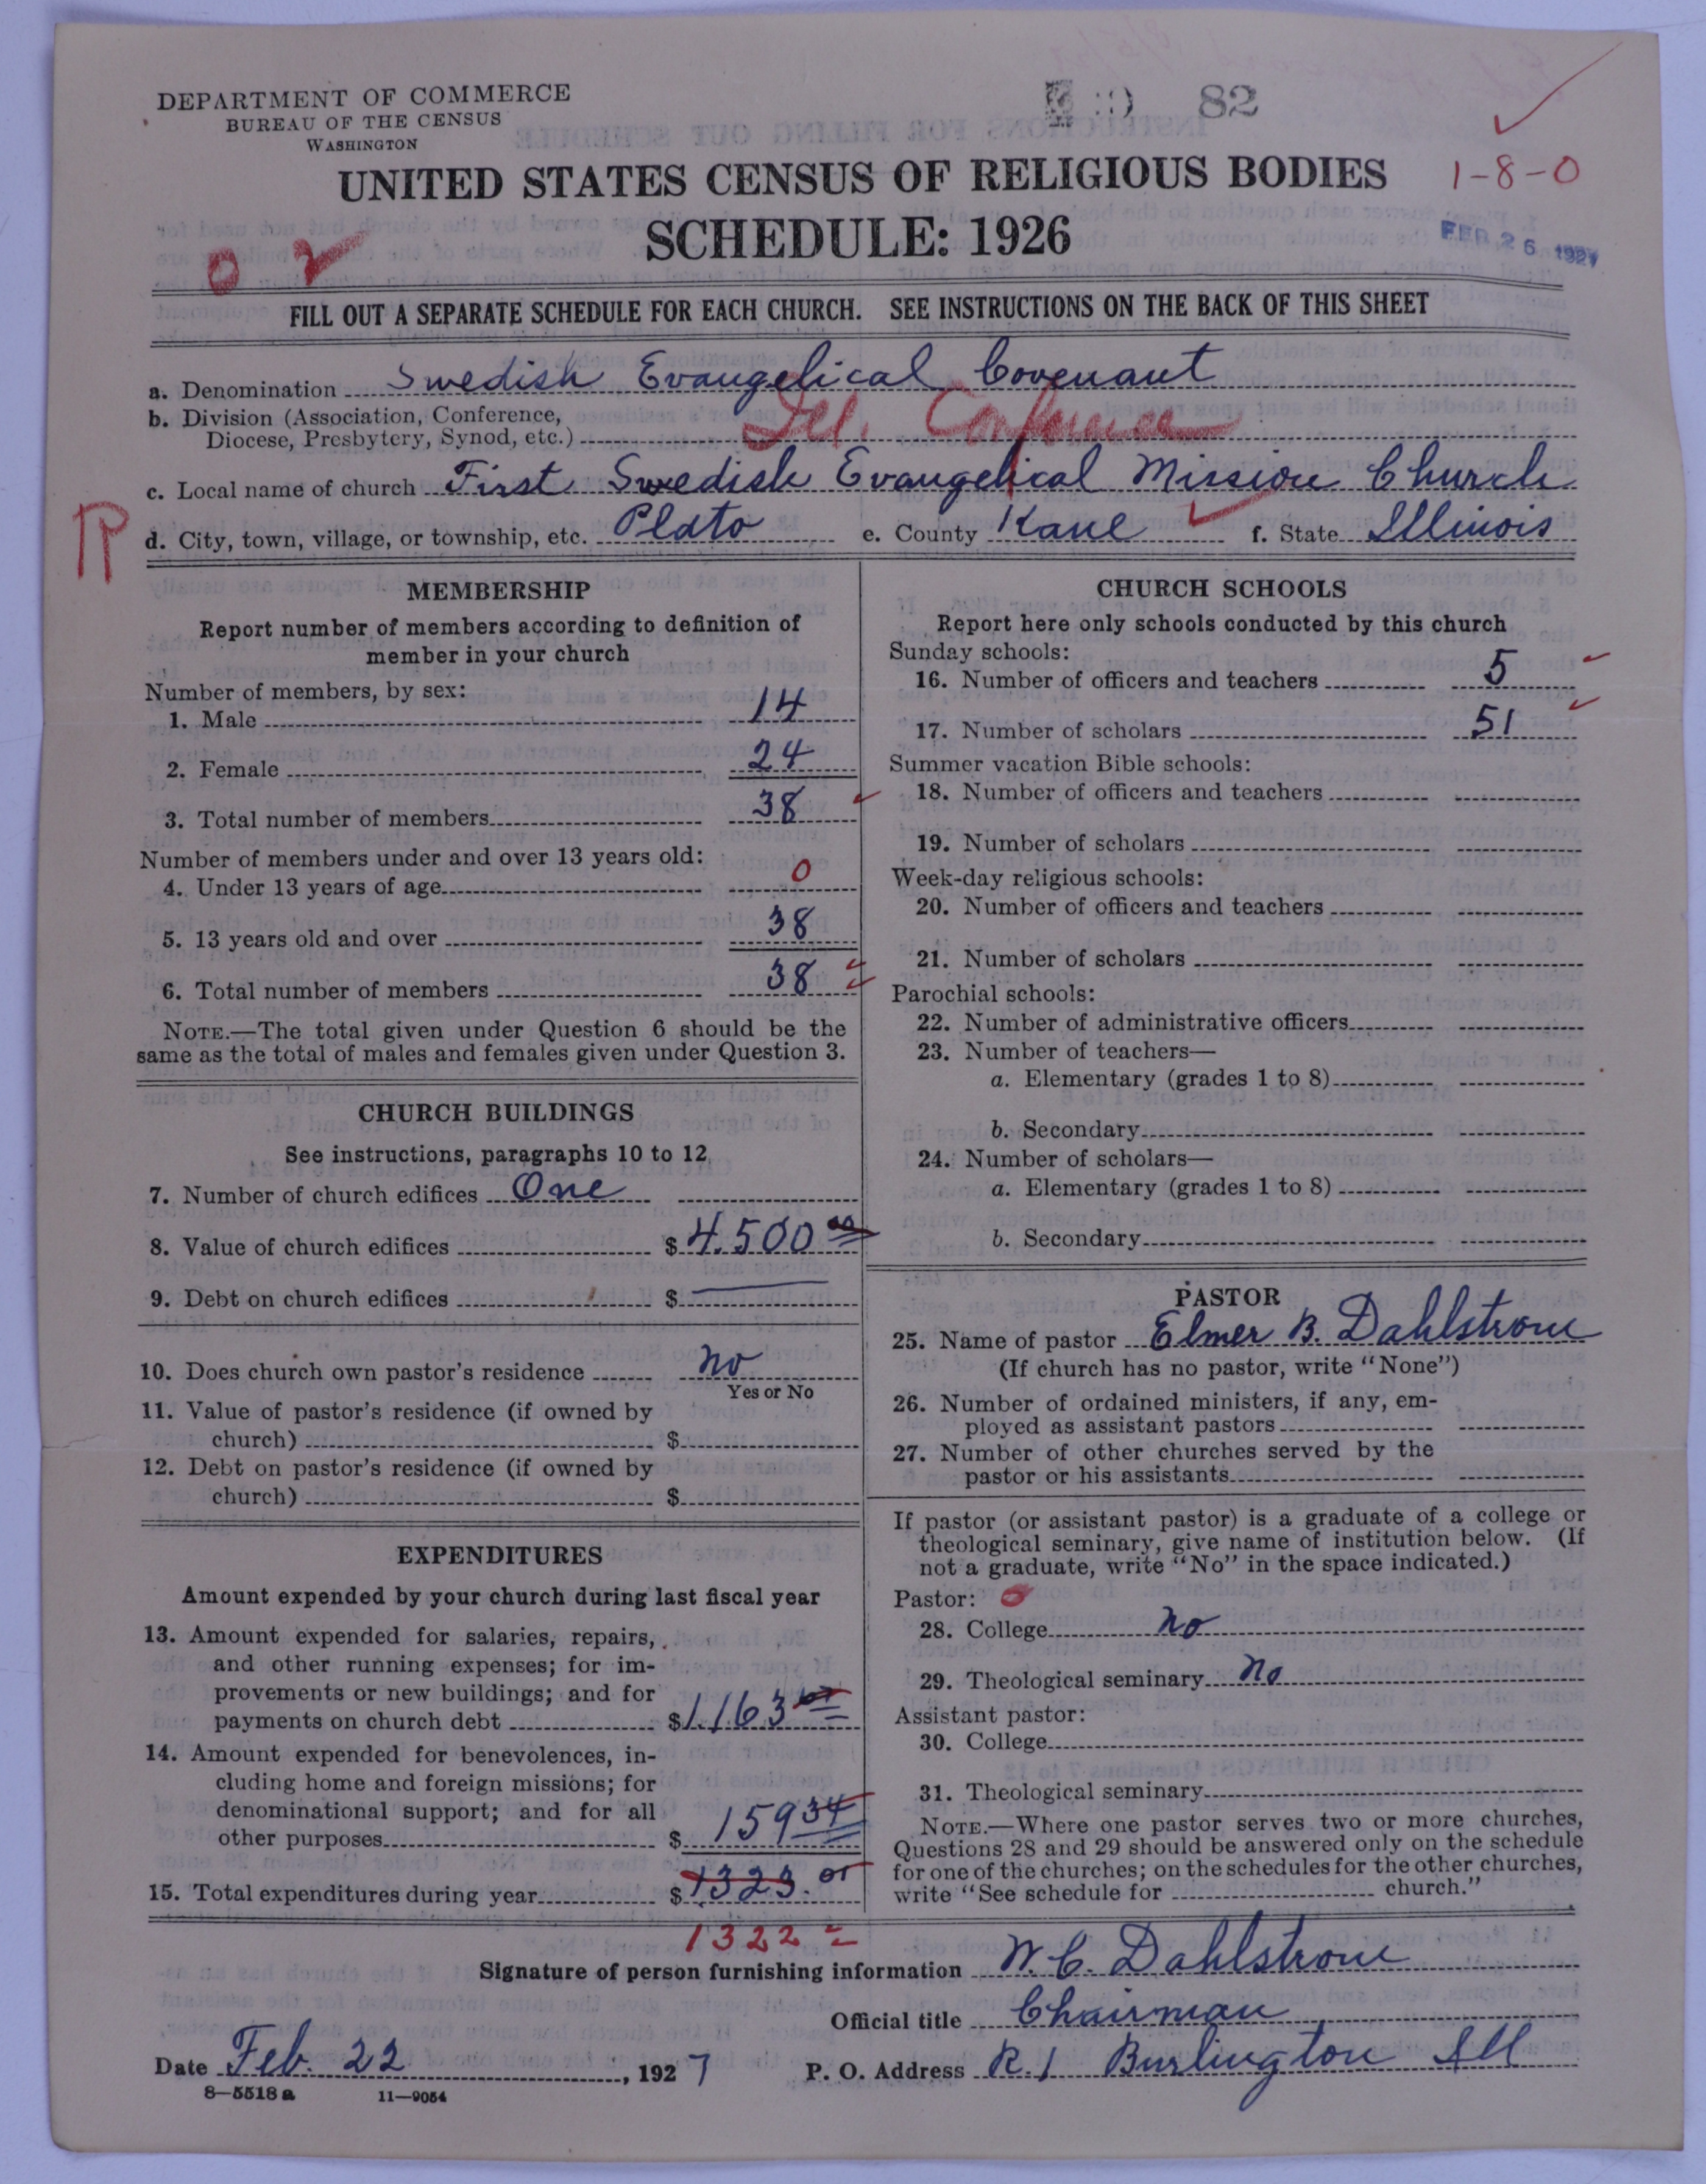 DEPARTMENT OF COMMERCE
BUREAU OF THE CENSUS
WASHINGTON
82
UNITED STATES CENSUS OF RELIGIOUS BODIES
1-8-0
SCHEDULE: 1926
FEB 26 1927
0 2
FILL OUT A SEPARATE SCHEDULE FOR EACH CHURCH. SEE INSTRUCTIONS ON THE BACK OF THIS SHEET
a. Denomination Swedish Evangelical Covenant
b. Division (Association, Conference,
Diocese, Presbytery, Synod, etc.) Ill. Conference
c. Local name of church First Swedish Evangelical Mission Church
R
d. City, town, village, or township, etc. Plato e. County Kane f. State Illinois
MEMBERSHIP
Report number of members according to definition of
member in your church
Number of members, by sex:
1. Male 14
2. Female 24
3. Total number of members 38
Number of members under and over 13 years old:
4. Under 13 years of age 0
5. 13 years old and over 38
6. Total number of members 38
NOTE.—The total given under Question 6 should be the
same as the total of males and females given under Question 3.
CHURCH BUILDINGS
See instructions, paragraphs 10 to 12
7. Number of church edifices One
8. Value of church edifices $ 4.500 00
9. Debt on church edifices $
10. Does church own pastor's residence No
Yes or No
11. Value of pastor's residence (if owned by
church) $
12. Debt on pastor's residence (if owned by
church) $
EXPENDITURES
Amount expended by your church during last fiscal year
13. Amount expended for salaries, repairs,
and other running expenses; for im-
provements or new buildings; and for
payments on church debt $ 1,163 67
14. Amount expended for benevolences, in-
cluding home and foreign missions; for
denominational support; and for all
other purposes $ 159 34
15. Total expenditures during year $ 1323.01
1322
CHURCH SCHOOLS
Report here only schools conducted by this church
Sunday schools:
16. Number of officers and teachers 5
17. Number of scholars 51
Summer vacation Bible schools:
18. Number of officers and teachers
19. Number of scholars
Week-day religious schools:
20. Number of officers and teachers
21. Number of scholars
Parochial schools:
22. Number of administrative officers
23. Number of teachers—
a. Elementary (grades 1 to 8)
b. Secondary
24. Number of scholars—
a. Elementary (grades 1 to 8)
b. Secondary
PASTOR
25. Name of pastor Elmer B. Dahlstrom
(If church has no pastor, write "None")
26. Number of ordained ministers, if any, em-
ployed as assistant pastors
27. Number of other churches served by the
pastor or his assistants
If pastor (or assistant pastor) is a graduate of a college or
theological seminary, give name of institution below. (If
not a graduate, write "No" in the space indicated.)
Pastor: 0
28. College No
29. Theological seminary No
Assistant pastor:
30. College
31. Theological seminary
NOTE.—Where one pastor serves two or more churches,
Questions 28 and 29 should be answered only on the schedule
for one of the churches; on the schedules for the other churches,
write "See schedule for church."
Signature of person furnishing information W. C. Dahlstrom
Official title Chairman
Date Feb. 22, 1927 P. O. Address R. 1 Burlington Ill
8—5518 a 11—9054